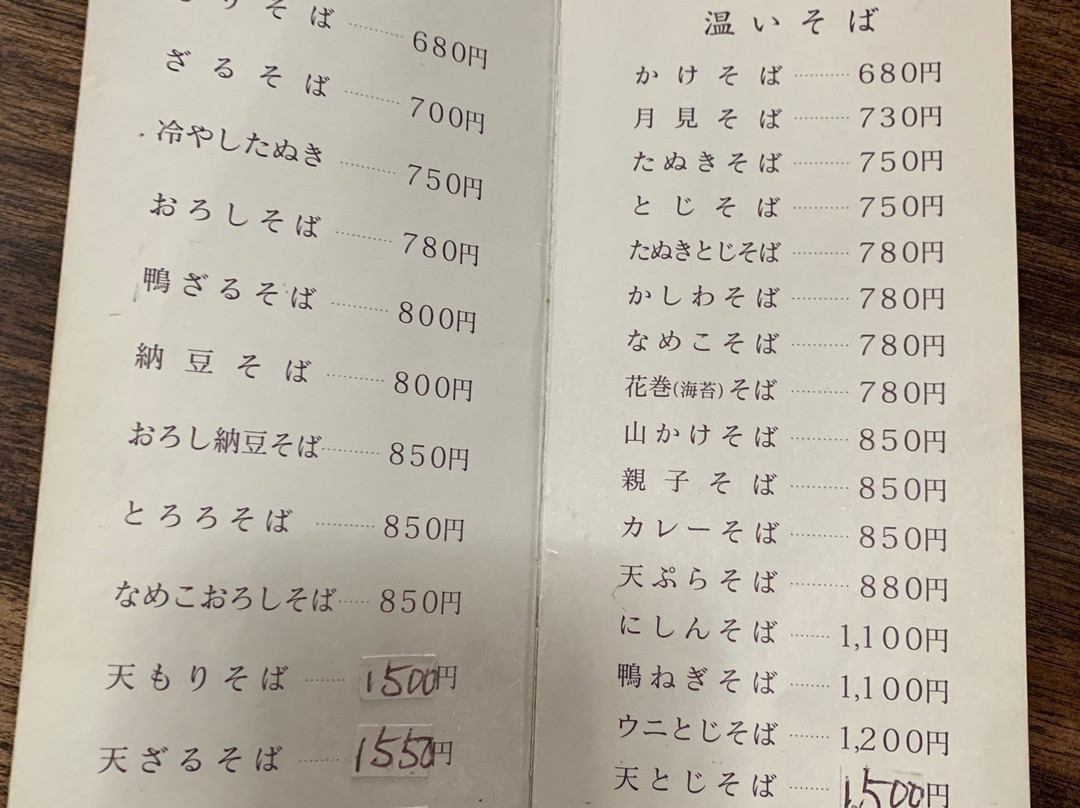 りそば 680円
ざるそば 700円
冷やしたぬき 750円
おろしそば 780円
鴨ざるそば 800円
納豆そば 800円
おろし納豆そば 850円
とろろそば 850円
なめこおろしそば 850円
天もりそば 1500円
天ざるそば 1550円
温いそば
かけそば 680円
月見そば 730円
たぬきそば 750円
とじそば 750円
たぬきとじそば 780円
かしわそば 780円
なめこそば 780円
花巻(海苔)そば 780円
山かけそば 850円
親子そば 850円
カレーそば 850円
天ぷらそば 880円
にしんそば 1,100円
鴨ねぎそば 1,100円
ウニとじそば 1,200円
天とじそば 1,500円